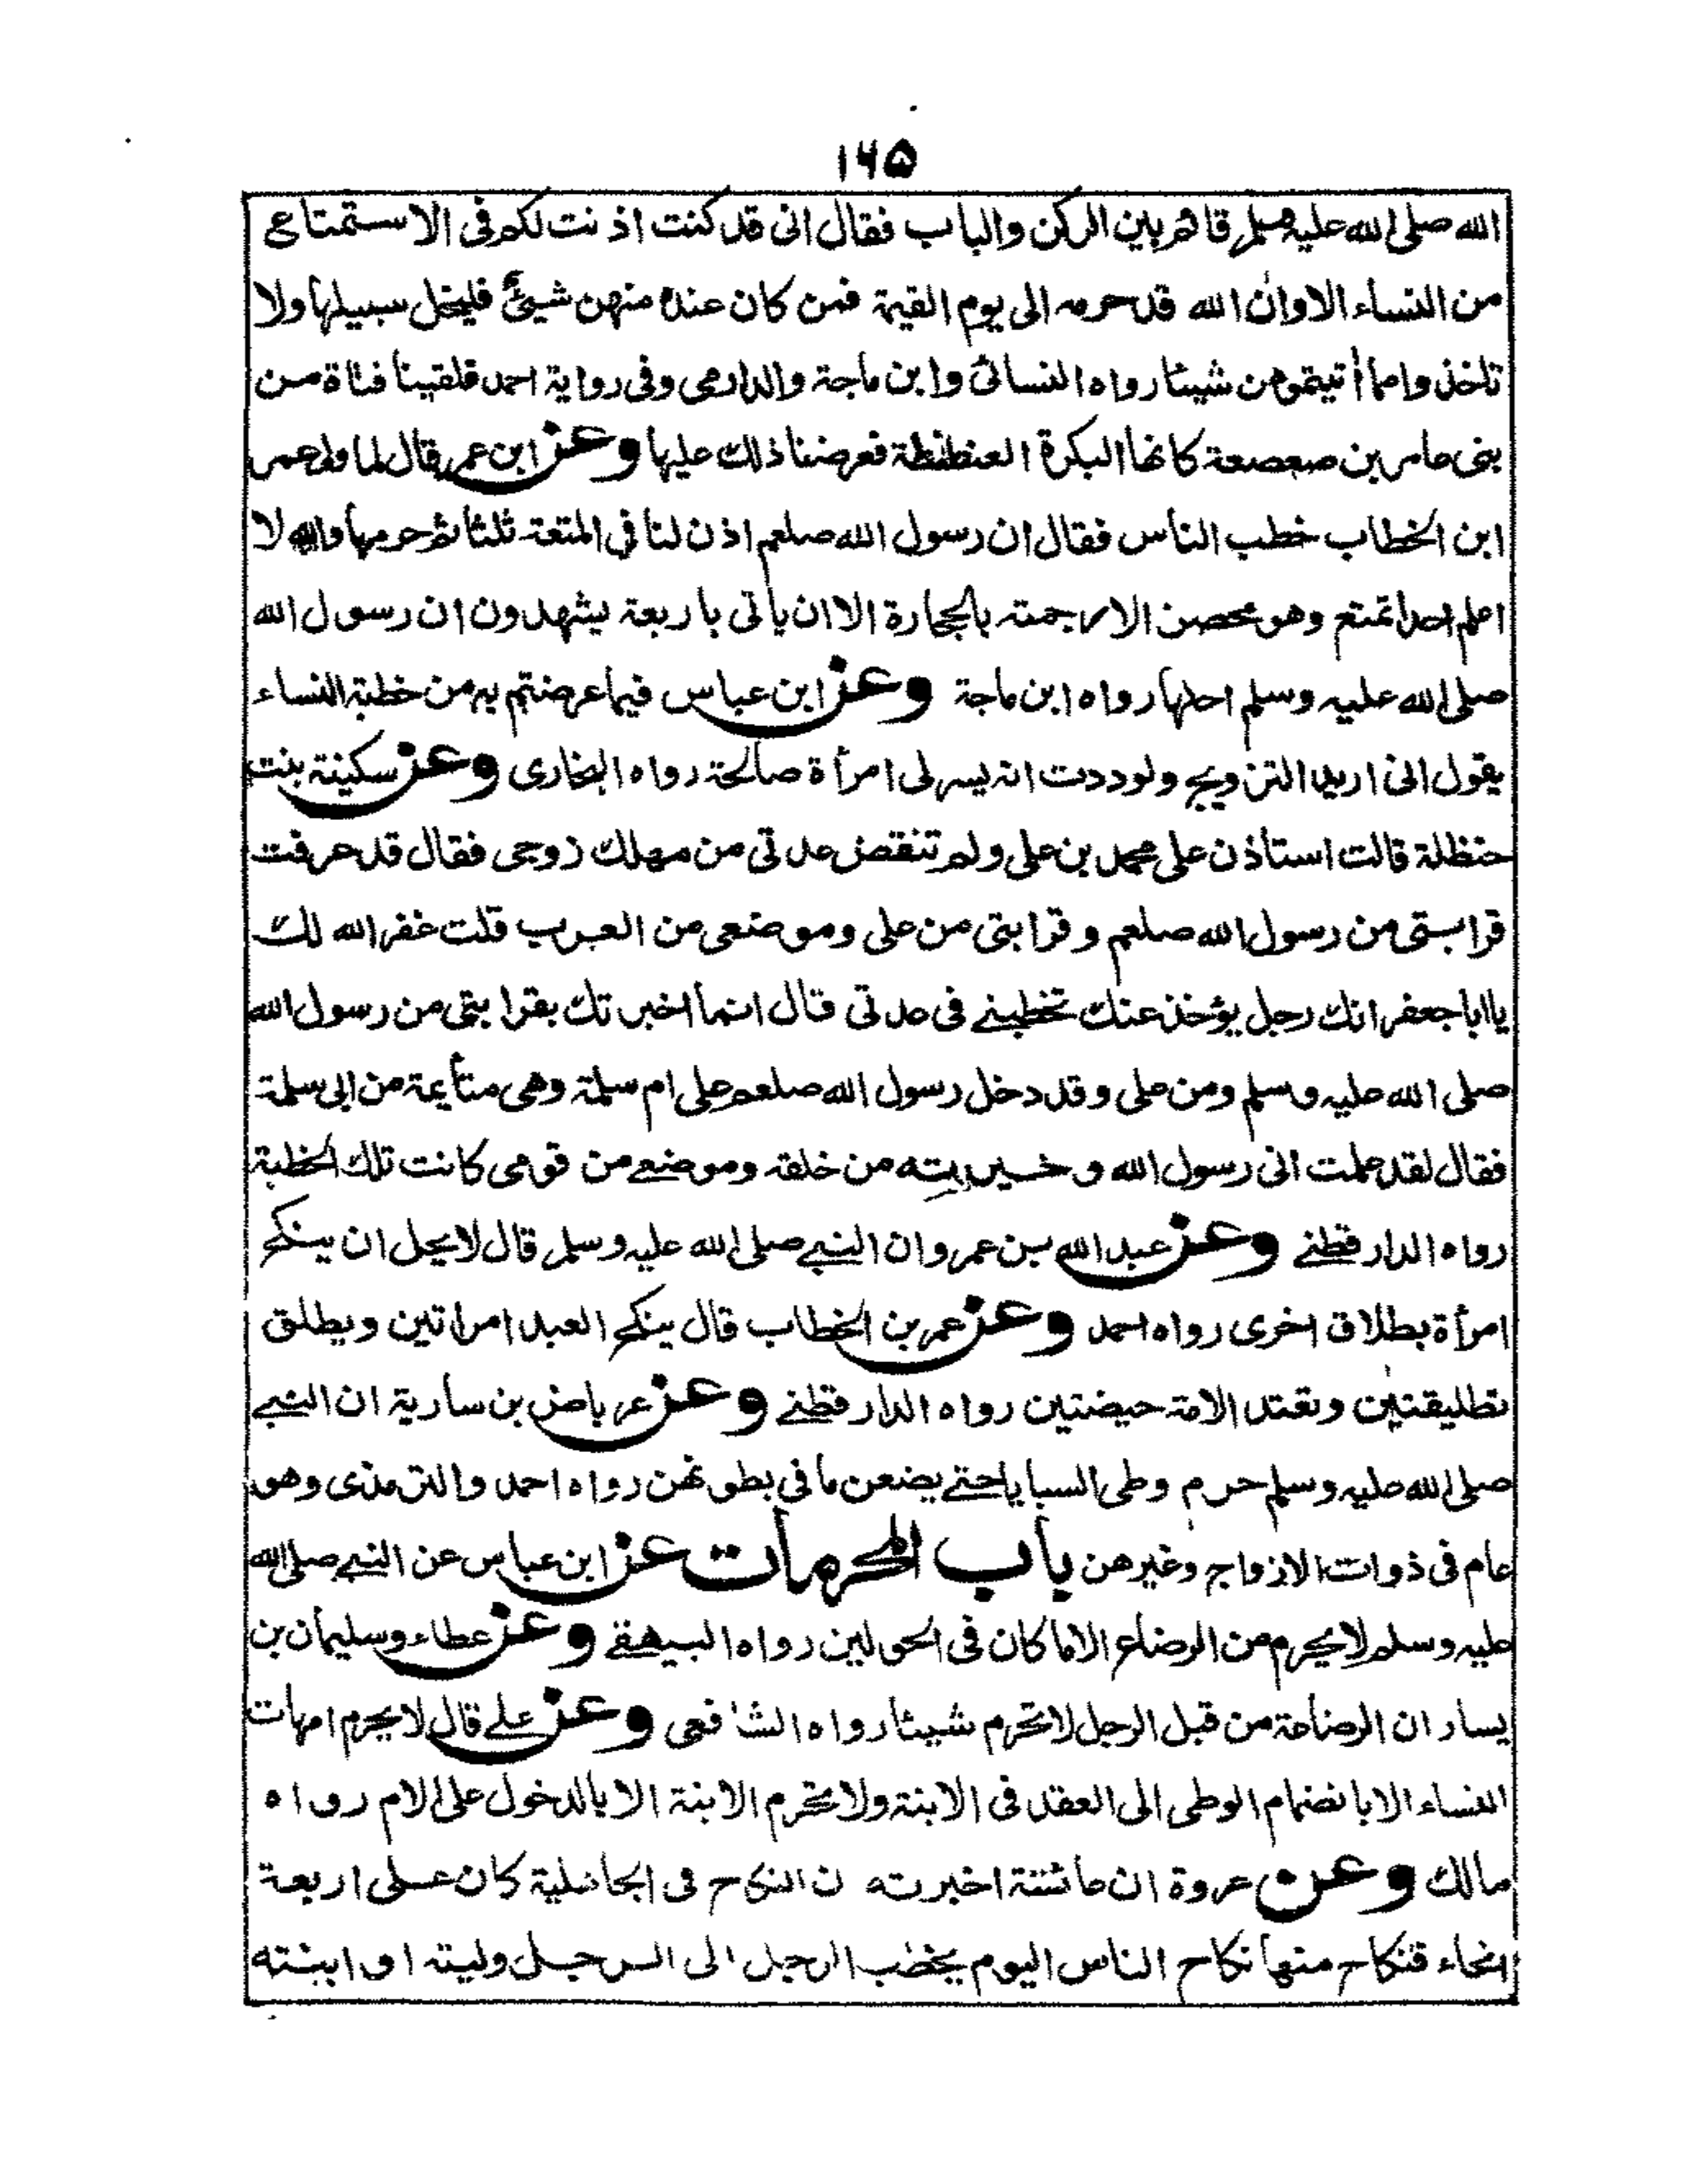 ۱۶۵
الله صلى الله عليه وسلم قائم بين الركن والباب فقال انى قد كنت اذنت لكم فى الاستمتاع
من النساء الا وان الله قد حرمه الى يوم القيمة فمن كان عنده منهن شيئ فليخل سبيلها ولا
تاخذ وامما أتيتموهن شيئا رواه النسائى وابن ماجة والدارمى وفى رواية احمد فلقينا فتاة من
بنى عامر بن صعصعة كانها البكرة العنطنطة فعرضنا ذلك عليها وعن ابن عمر قال لما ولى عمر
ابن الخطاب خطب الناس فقال ان رسول الله صلعم اذن لنا فى المتعة ثلثا ثم حرمها والله لا
اعلم احدا تمتع وهو محصن الا رجمته بالحجارة الا ان ياتى باربعة يشهدون ان رسول الله
صلى الله عليه وسلم احلها رواه ابن ماجة وعن ابن عباس فيما عرضتم به من خطبة النساء
يقول انى اريد التزويج ولوددت انه يسر لى امرأة صالحة رواه البخارى وعن سكينة بنت
حنظلة قالت استاذن على محمد بن على ولم تنقض عدتى من مهلك زوجى فقال قد عرفت
قرابتى من رسول الله صلعم وقرابتى من على وموضعى من العرب قلت غفر الله لك
يا ابا جعفر انك رجل يؤخذ عنك تخطبنے فى عدتى قال انما اخبرتك بقرابتى من رسول الله
صلى الله عليه وسلم ومن على وقد دخل رسول الله صلعم على ام سلمة وهى متأيمة من ابى سلمة
فقال لقد علمت انى رسول الله و خيرته من خلقه وموضعے من قومى كانت تلك الخطبة
رواه الدارقطنے وعن عبد الله بن عمرو ان النبے صلى الله عليه وسلم قال لا يحل ان ينكح
امرأة بطلاق اخرى رواه احمد وعن عمر بن الخطاب قال ينكح العبد امراتين ويطلق
تطليقتين وتعتد الامة حيضتين رواه الدارقطنے وعن عرباض بن سارية ان النبے
صلى الله عليه وسلم حرم وطى السبايا حتے يضعن ما فى بطونهن رواه احمد والترمذى وهو
عام فى ذوات الازواج وغيرهن باب المحرمات عن ابن عباس عن النبے صلى الله
عليه وسلم لا يحرم من الرضاع الا ما كان فى الحولين رواه البيهقے وعن عطاء وسليمان بن
يسار ان الرضاعة من قبل الرجل لا تحرم شيئا رواه الشافعى وعن علے قال لا يحرم امهات
النساء الا بانضمام الوطى الى العقد فى الابنة ولا تحرم الابنة الا بالدخول على الام رواه
مالك وعن عروة ان عائشة اخبرته ن النكاح فى الجاهلية كان على اربعة
انحاء فنكاح منها نكاح الناس اليوم يخطب الرجل الى الرجل وليته او ابنته